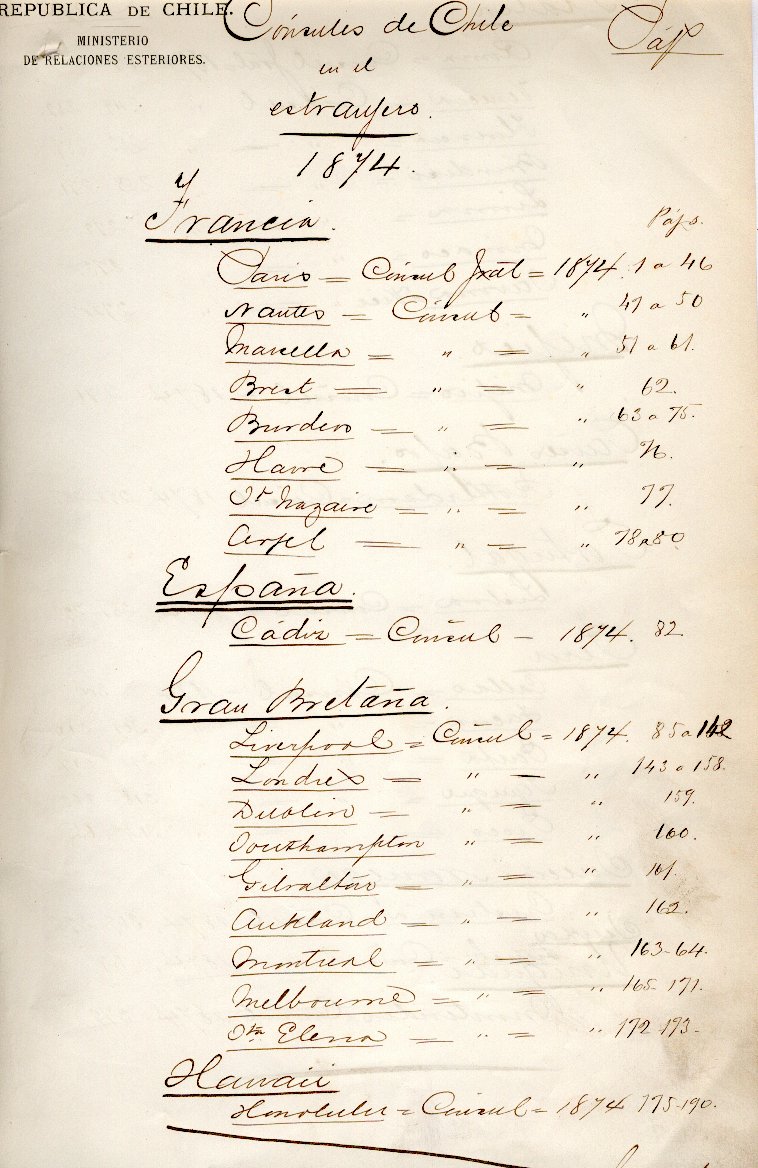 REPUBLICA DE CHILE.
MINISTERIO
DE RELACIONES ESTERIORES.
Cónsules de Chile
en el
estranjero.
1874.
Páj
Francia. Pájs.
Paris = Cónsul Jral = 1874. 1 a 46
Nantes = Cónsul = " 47 a 50
Marsella = " = " 51 a 61.
Brest = " = " 62.
Burdeos = " = " 63 a 75.
Havre = " = " 76.
St Nazaire = " = " 77.
Arjel = " = " 78 a 80
España.
Cádiz = Cónsul - 1874. 82
Gran Bretaña.
Liverpool = Cónsul = 1874. 85 a 142
Londres = " = " 143 a 158.
Dublin = " = " 159.
Southampton " = " 160.
Gibraltár = " = " 161.
Aukland = " = " 162.
Montreal = " = " 163-64.
Melbourne = " = " 165-171.
Sta Elena = " = " 172-173-
Hawaii
Honolulu = Cónsul = 1874 175-190.